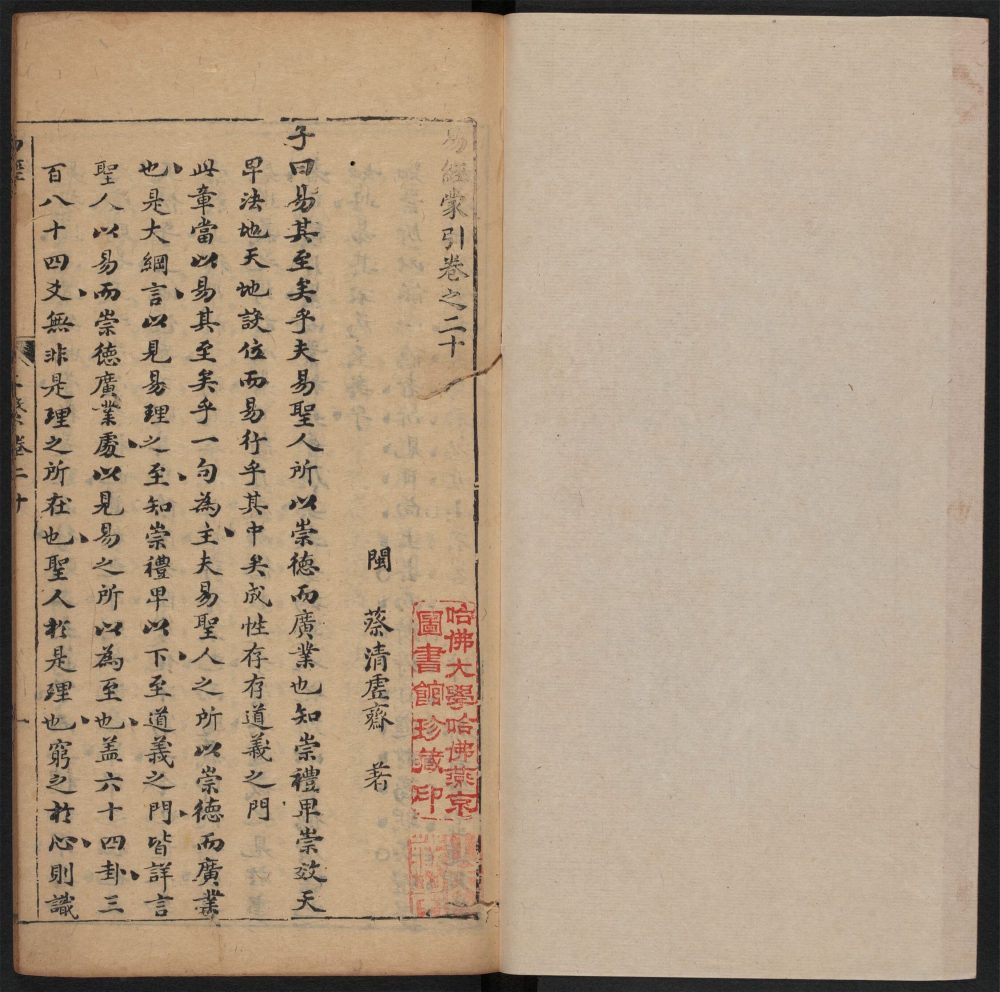 易經蒙引卷之二十
閩　蔡清虛齋　著
子曰易其至矣乎夫易聖人所以崇德而廣業也知崇禮卑崇效天
卑法地天地設位而易行乎其中矣成性存存道義之門
此章當以易其至矣乎一句為主夫易聖人之所以崇德而廣業
也是大綱言以見易理之至知崇禮卑以下至道義之門皆詳言
聖人以易而崇德廣業處以見易之所以為至也盖六十四卦三
百八十四爻無非是理之所在也聖人於是理也窮之於心則識
哈佛大學哈佛燕京
圖書館珍藏印
易經
上繫卷二十
一